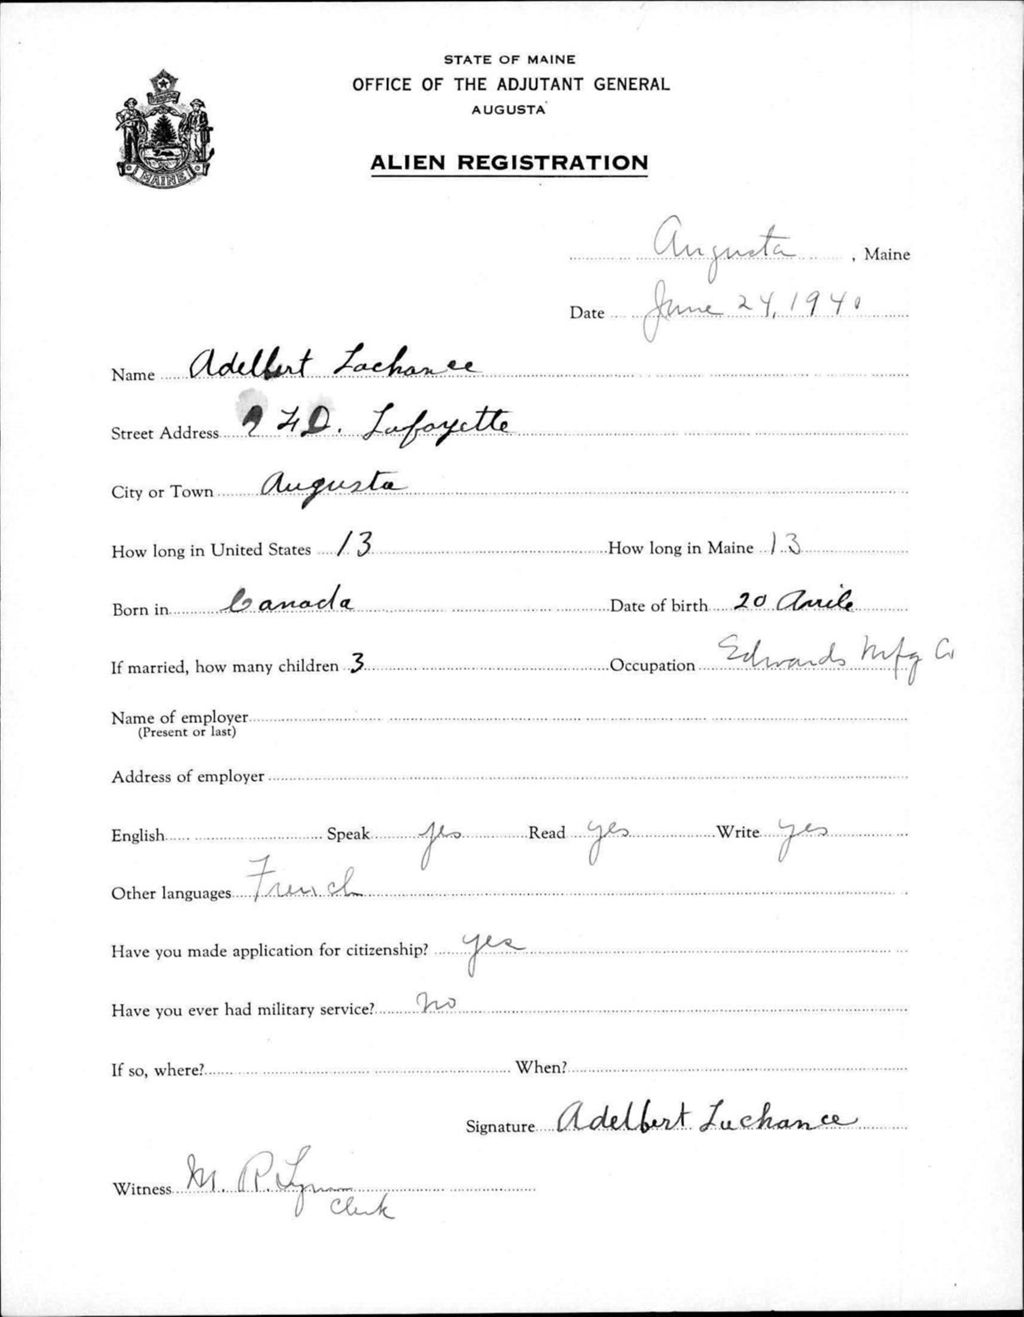 STATE OF MAINE
OFFICE OF THE ADJUTANT GENERAL
AUGUSTA
ALIEN REGISTRATION
MAINE
Augusta, Maine
Date June 24, 1940
Name Adelbert Lachance
Street Address FD. Lafayette
City or Town Augusta
How long in United States 13 How long in Maine 13
Born in Canada Date of birth 20 Avrile
If married, how many children 3 Occupation Edwards Mfg Co
Name of employer
(Present or last)
Address of employer
English Speak yes Read yes Write yes
Other languages French
Have you made application for citizenship? yes
Have you ever had military service? no
If so, where? When?
Signature Adelbert Lachance
Witness M. R. Lyman
Clerk